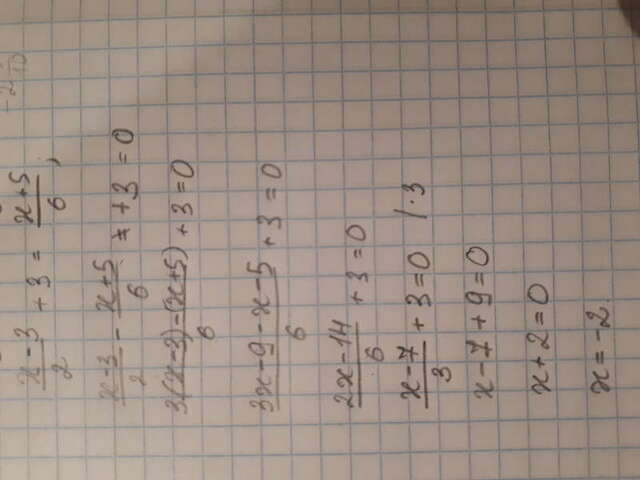 (x-3)/2 + 3 = (x+5)/6;
(x-3)/2 - (x+5)/6 + 3 = 0
(3(x-3)-(x+5))/6 + 3 = 0
(3x-9-x-5)/6 + 3 = 0
(2x-14)/6 + 3 = 0
(x-7)/3 + 3 = 0 /·3
x-7+9=0
x+2=0
x=-2.